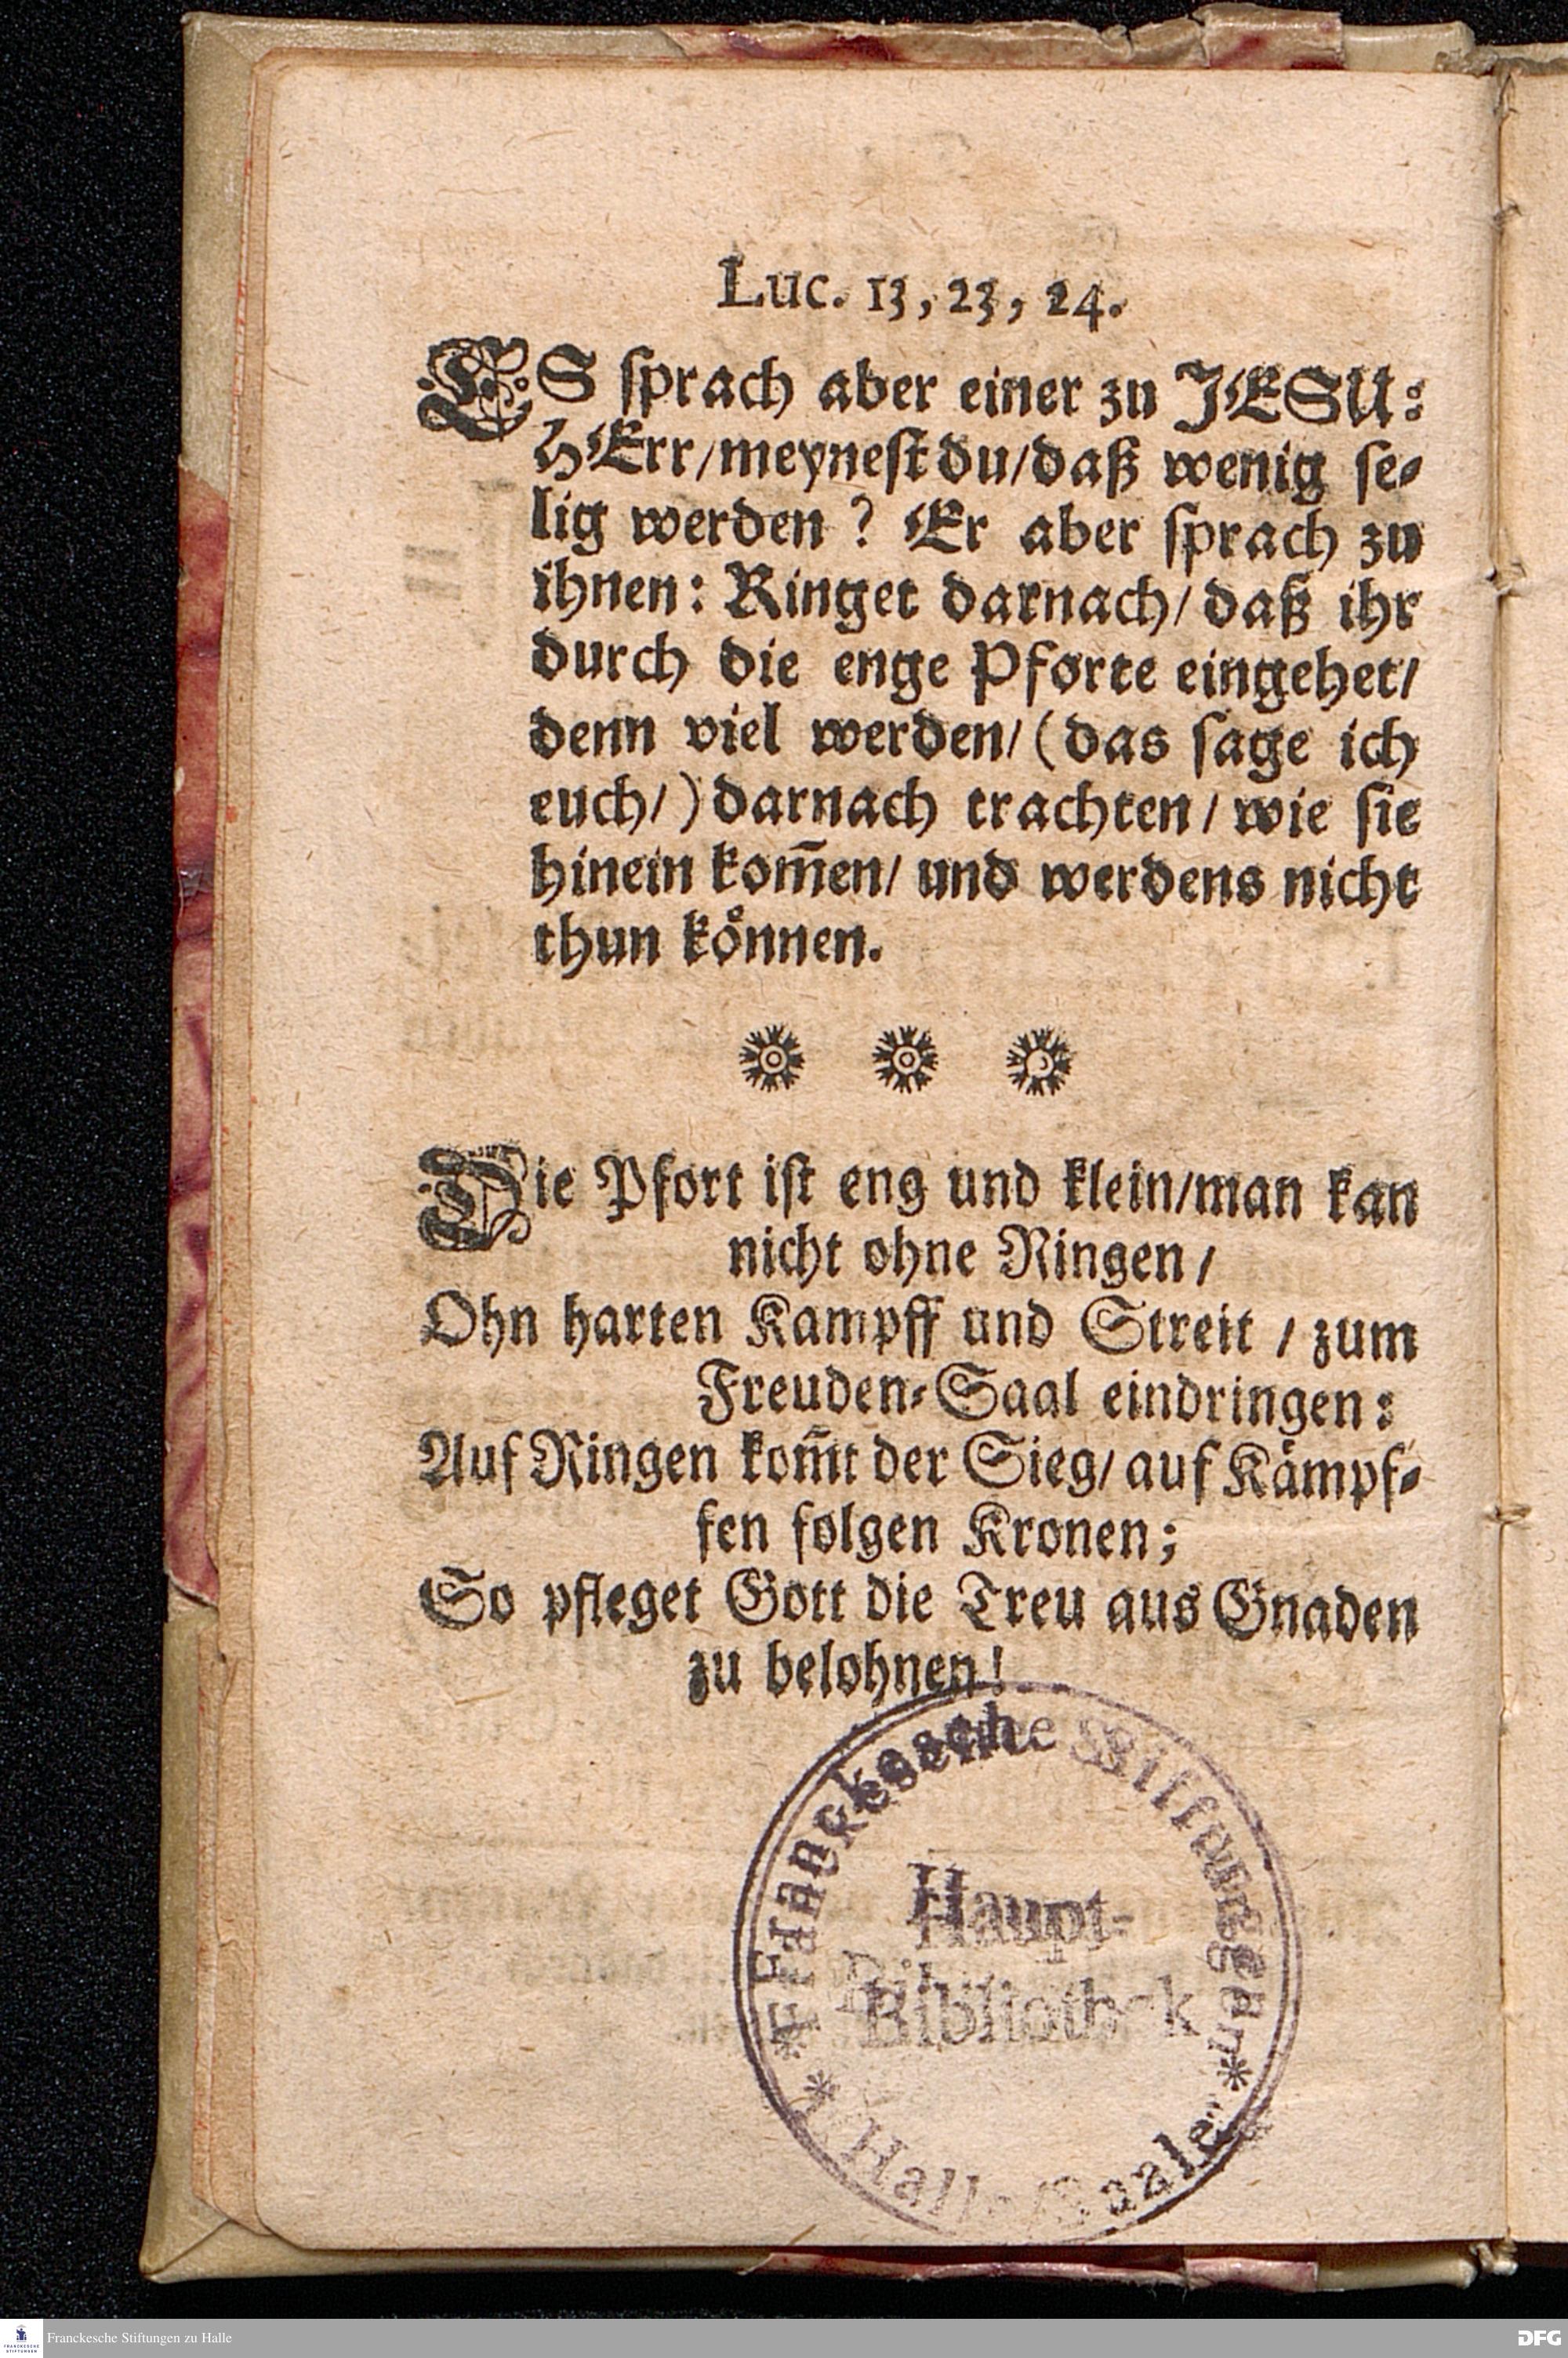 Luc. 13, 23, 24.
ES ſprach aber einer zu JESU:
HErr/meyneſt du/daß wenig ſe-
lig werden? Er aber ſprach zu
ihnen: Ringet darnach/ daß ihr
durch die enge Pforte eingehet/
denn viel werden/ (das ſage ich
euch/) darnach trachten/ wie ſie
hinein kom̃en/ und werdens nicht
thun koͤnnen.
Die Pfort iſt eng und klein/man kan
nicht ohne Ringen/
Ohn harten Kampff und Streit / zum
Freuden-Saal eindringen:
Auf Ringen kom̃t der Sieg/ auf Kaͤmpf-
fen folgen Kronen;
So pfleget Gott die Treu aus Gnaden
zu belohnen!
Franckesche Stiftungen
Haupt-
Bibliothek
* Halle/Saale *
Franckesche Stiftungen zu Halle
FRANCKESCHE
STIFTUNGEN
DFG